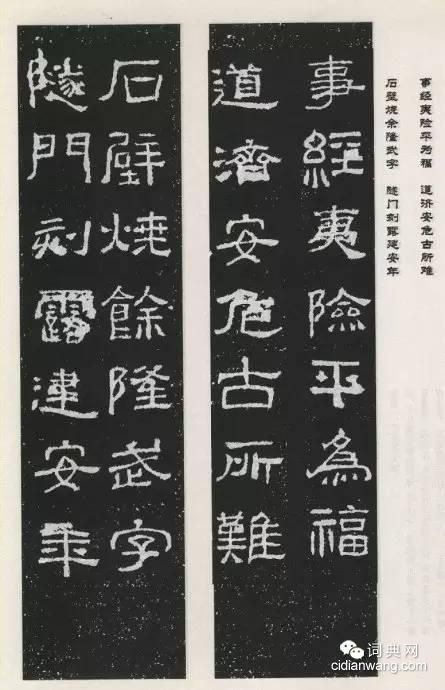 事经夷险平为福　道济安危古所难
石壁烧余隆武字　隧门刻露建安年
事經夷險平為福
道濟安危古所難
石壁燒餘隆武字
隧門刻露建安年
词典网
cidianwang.com